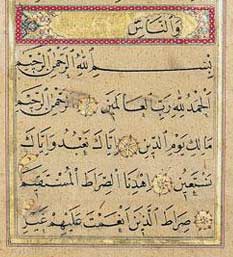 والناس
بسم الله الرحمن الرحيم
الحمد لله رب العالمين الرحمن الرحيم
مالك يوم الدين إياك نعبد وإياك
نستعين اهدنا الصراط المستقيم
صراط الذين أنعمت عليهم غير